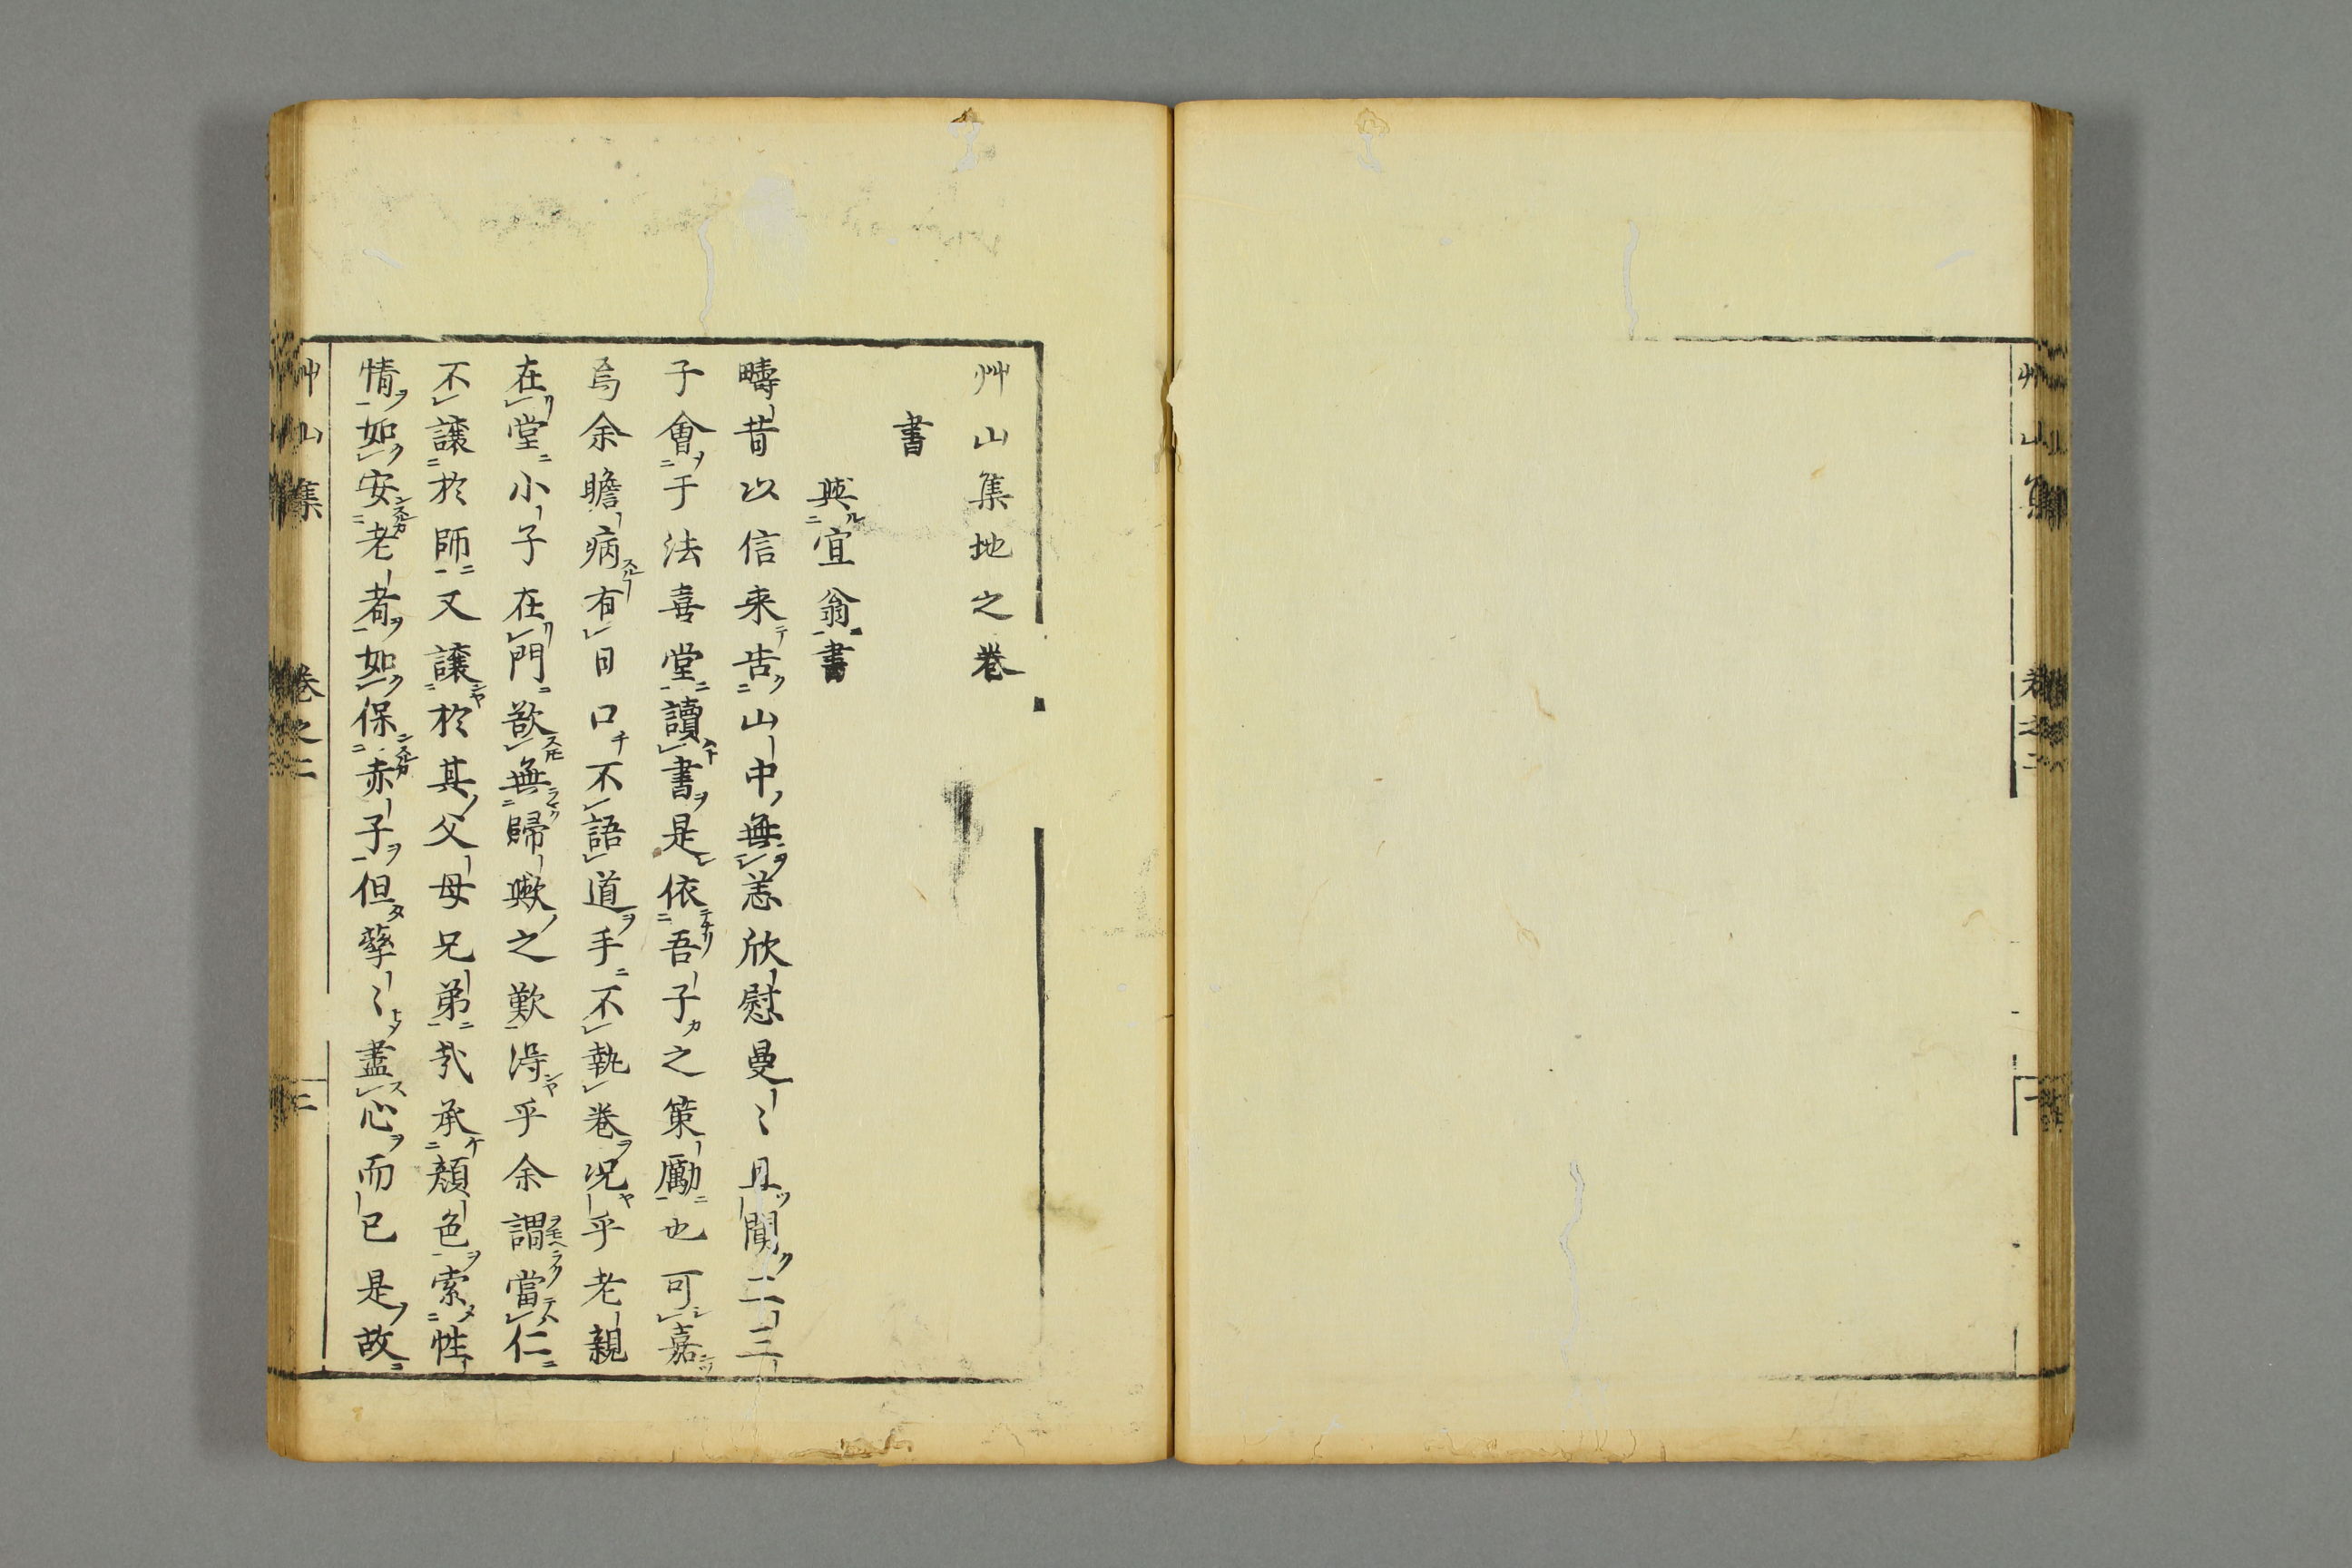 艸山集
卷之二
艸山集地之卷
書
與宜翁書
疇昔以信来告山中無恙欣慰曼〻且聞二三
子會于法喜堂讀書是依吾子之策勵也可嘉
焉余瞻病有日口不語道手不執卷况乎老親
在堂小子在門欲無歸歟之歎得乎余謂當仁
不讓於師又讓於其父母兄弟㢤承顏色索性
情如安老者如保赤子但孳〻盡心而已是故
艸山集
卷之二